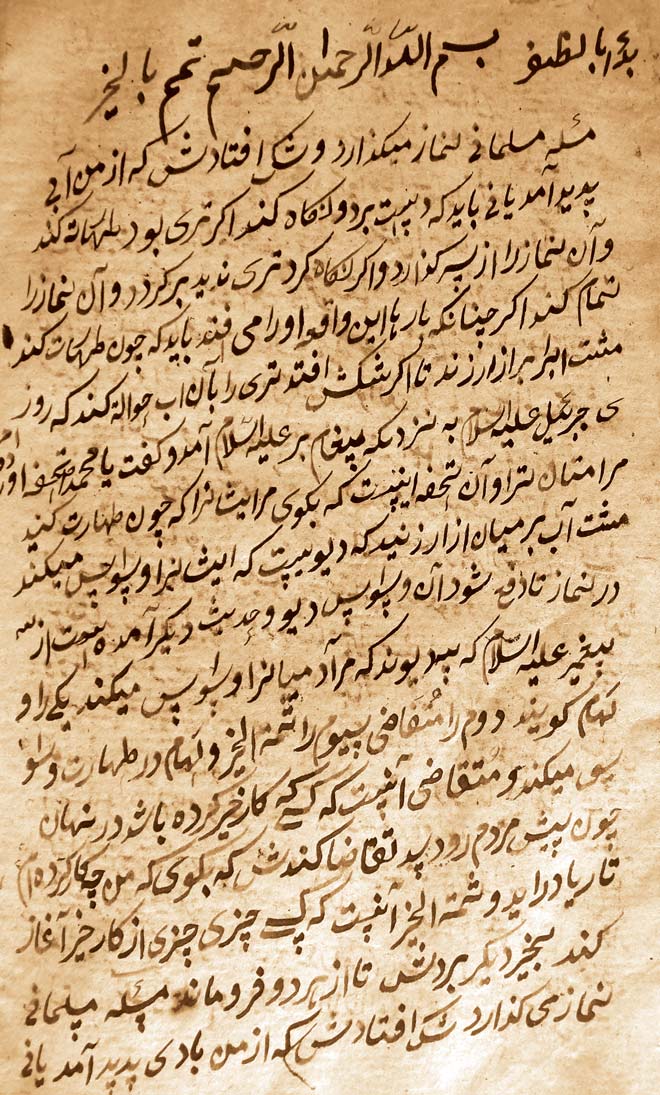 بسم الله الرحمن الرحیم تمم بالخیر
مسئله مسلمانی نماز میکذارد و شک افتادش که از من آبی
پدید آمد یا نی باید که دست برد و نکاه کند اکر تری بود طهارت کند
و آن نماز را از سر کذارد و اکر نکاه کرد تری ندید بر کردد و آن نماز را
تمام کند اکر چنانکه بارها این واقعه او را می افتد باید که چون طهارت کند
مشت آب بر ازار زند تا اکر شکش افتد تری را بآن آب حواله کند که روز
ی جبرئیل علیه السلام به نزدیکه پیغامبر علیه السلام آمد و کفت یا محمد تحفه آور
مر امتان ترا و آن تحفه اینست که بکوی مر ایشانرا که چون طهارت کنید
مشت آب بر میان ازار زنید که دیویست که ایشانرا وسواس میکند
در نماز تا دفع شود آن وسواس دیو و حدیث دیکر آمده است از
پیغمبر علیه السلام که سه دیوند که مر آدمیانرا وسواس میکند یکی را و
لهام کویند دوم را متقاضی سیوم را شمة الخیر ولهام در طهارت وسوا
س میکند و متقاضی آنست که کسی که کار خیر کرده باشد در نهان
چون پیش مردم رود تقاضا کندش که بکوی که من چه کار کرده ام
تا ریا دراید و شمة الخیر آنست که کسی چیزی از کار خیر آغاز
کند بخیر دیکر بردش تا از هر دو فرو ماند مسئله مسلمانی
نماز می کذارد شک افتادش که از من بادی پدید آمد یا نی